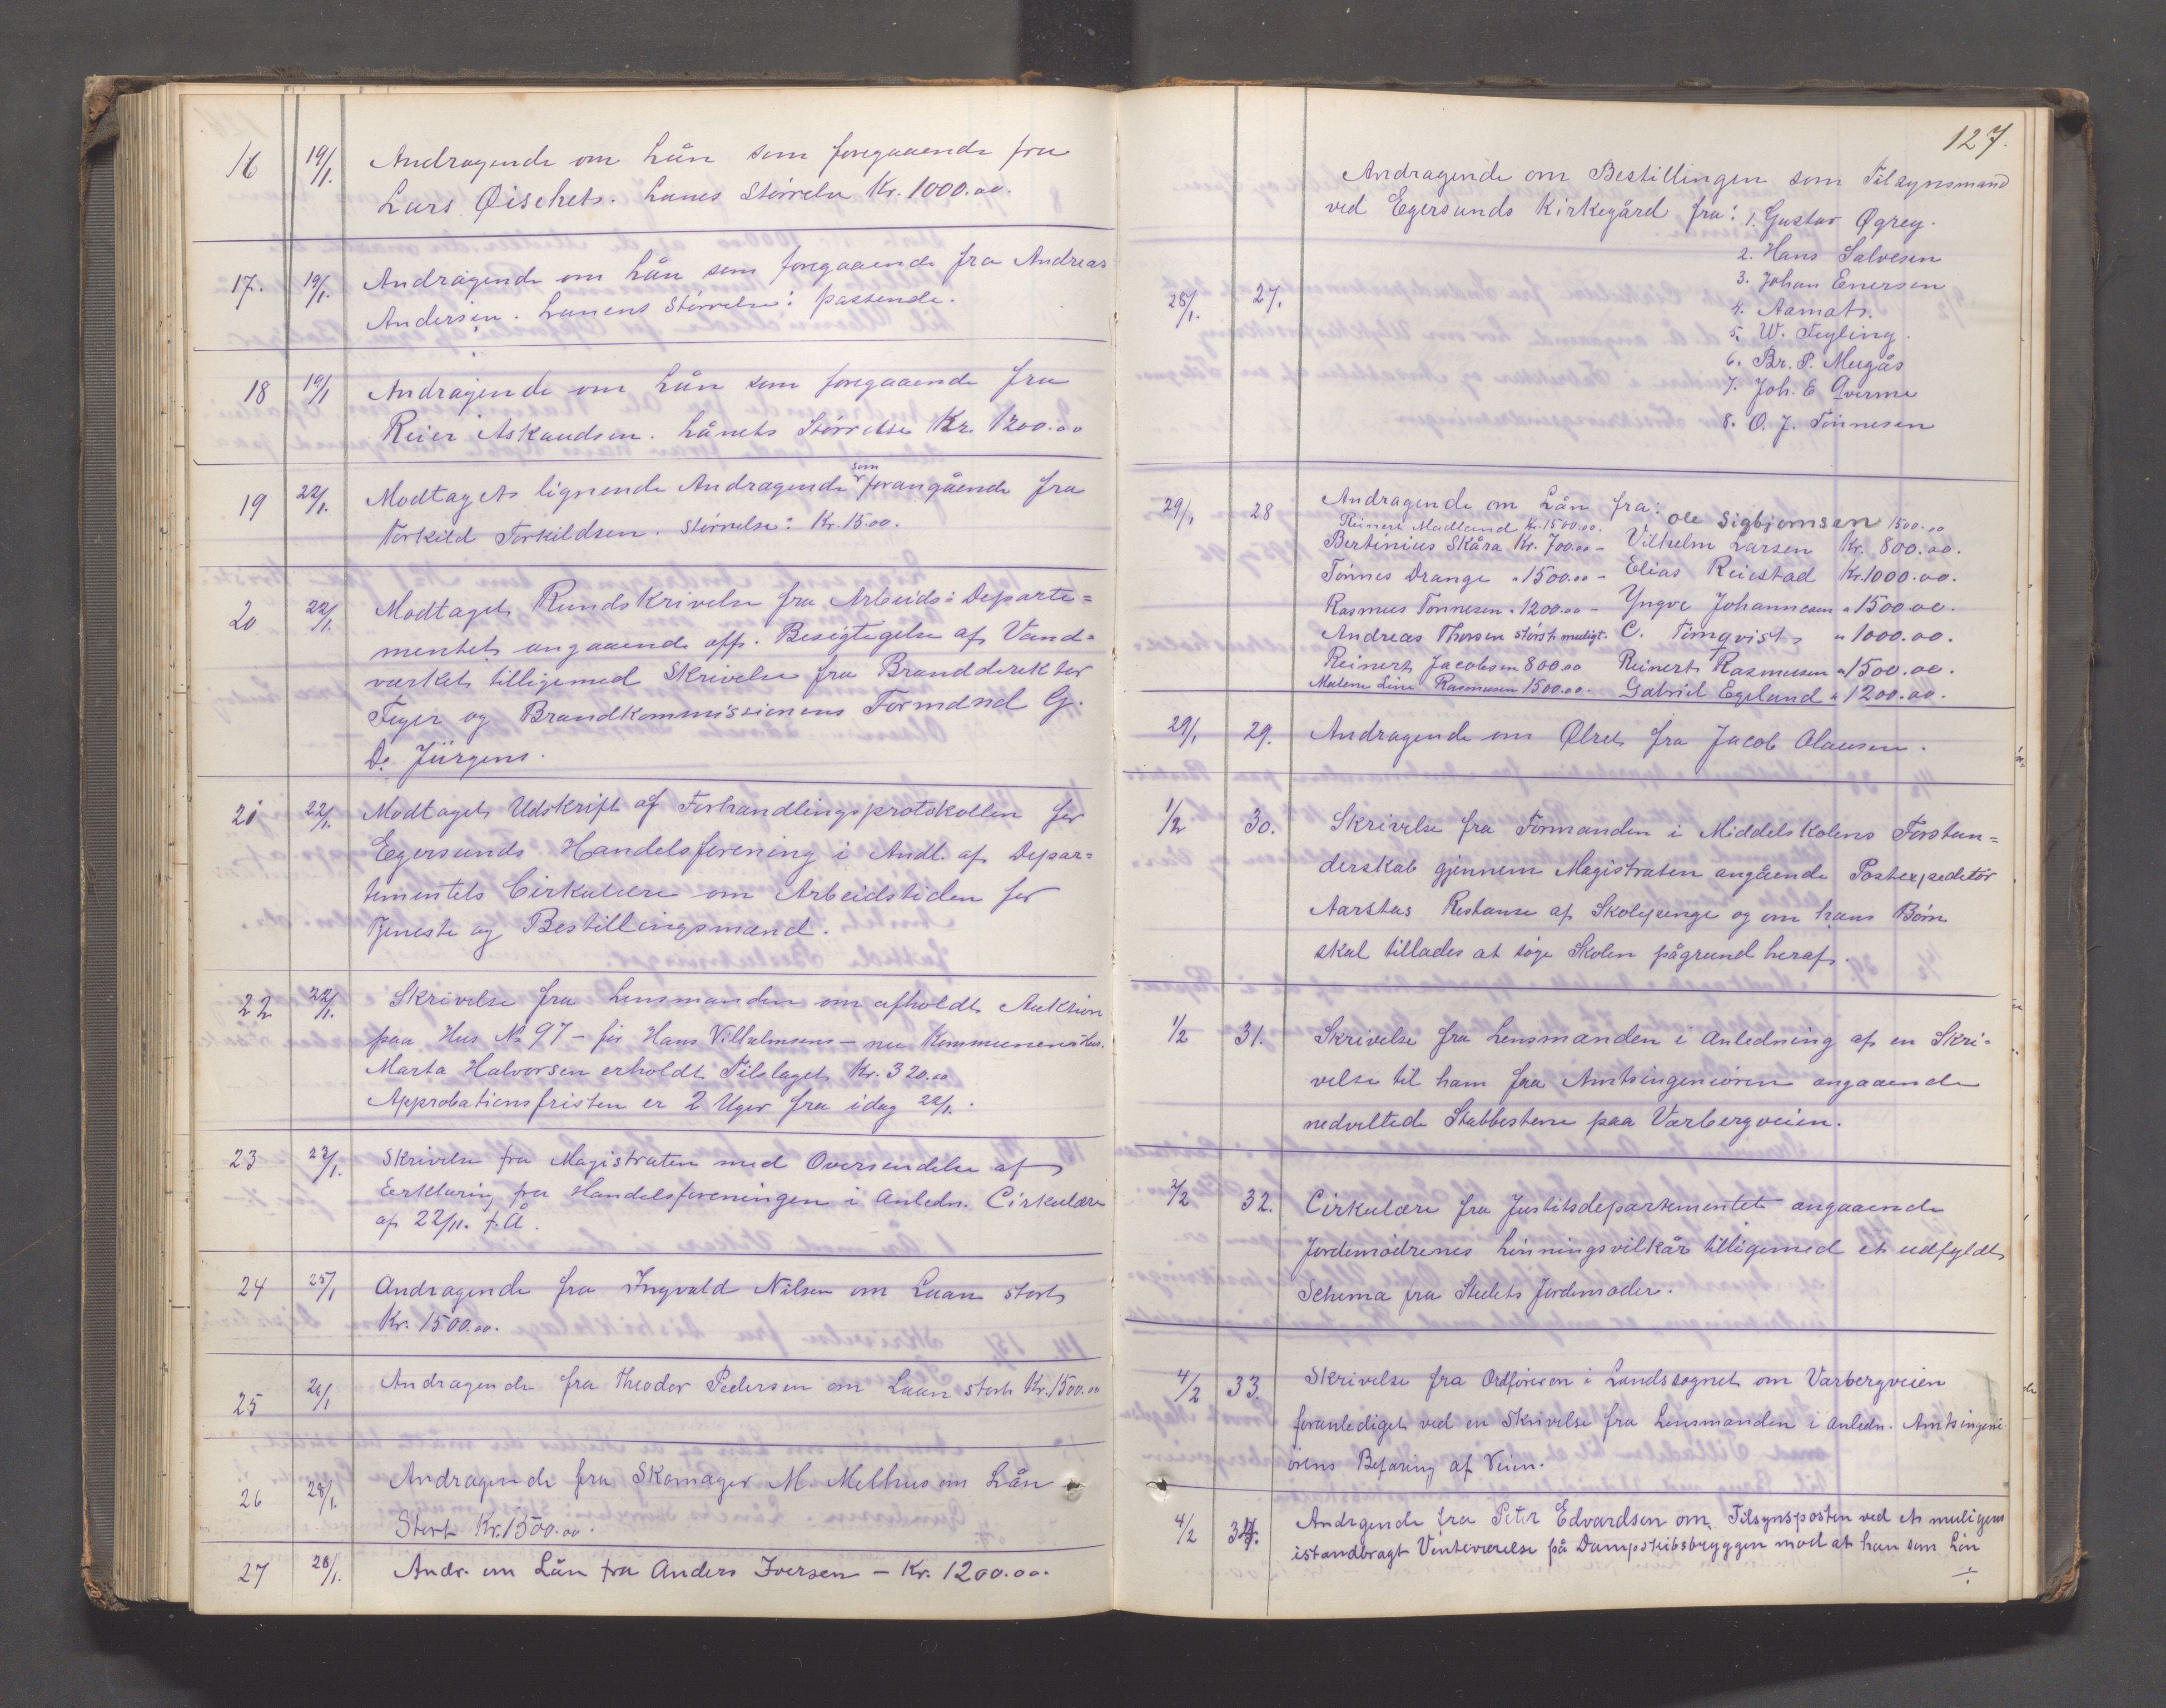 16 19/1. Andragende om Lån som foregaaende fra
Lars Øischet. Lanes Størrelse Kr. 1000.00.
17. 19/1. Andragende om Lån som foregaaende fra Andreas
Andersen. Lanens Størrelse: passende.
18 19/1 Andragende om Lån som foregaaende fra
Reier Askaudsen. Lånets Størrelse Kr. 1200.00
19 22/1. Modtaget lignende Andragende som forangående fra
Torkild Torkildsen. Størrelse: Kr. 15.00.
20 22/1. Modtaget Rundskrivelse fra Arbeids-Departe=
mentet angaaende off. Besigtigelse af Vand=
værket tilligemed Skrivelse fra Branddirektør
Feyer og Brandkommissionens Formand G.
D. Jürgens.
21 22/1. Modtaget Udskrift af Forhandlingsprotokollen for
Egersunds Handelsforening i Andl. af Depar=
tementets Cirkulære om Arbeidstiden for
Tjeneste og Bestillingsmænd.
22 22/1. Skrivelse fra Lensmanden om afholdt Auktion
paa Hus № 97 – før Hans Vilhelmsens – nu Kommunens Hus.
Marta Halvorsen erholdt Tilslaget Kr. 320.00
Approbationsfristen er 2 Uger fra idag 22/1.
23 23/1. Skrivelse fra Magistraten med Oversendelse af
Eerklæring fra Handelsforeningen i Anledn. Cirkulære
af 22/11. f. Å.
24 25/1 Andragende fra Ingvald Nilsen om Laan stort
Kr. 1500.00.
25 26/1 Andragende fra Theodor Pedersen om Laan stort Kr. 1500.00
26 28/1. Andragende fra Skomager M. Melhus om Lån
Stort Kr. 1500.00.
27 28/1. Andr. om Lån fra Anders Iversen – Kr. 1200.00.
127.
Andragende om Bestillingen som Tilsynsmand
ved Egersunds Kirkegård fra: 1. Gustav Øgrey.
2. Hans Salvesen
28/1. 27. 3. Johan Enersen
4. Aamot.
5. W. Fegling.
6. Br. P. Meegås
7. Joh. E. Qverme
8. O. J. Tønnesen
29/1 28 Andragende om Lån fra: Ole Sigbjørnsen 1500.00
Reinert Madland Kr. 1500.00.
Bertinius Skåra Kr. 700.00 – Vilhelm Larsen Kr. 800.00.
Tønnes Drange " 1500.00 – Elias Reiestad Kr. 1000.00.
Rasmus Tønnesen " 1200.00 – Yngve Johannesen " 1500.00.
Andreas Thorsen størst muligt. C. Tørnqvist " 1000.00.
Reinert Jacobsen 800.00 Reinert Rasmussen " 1500.00.
Malene Line Rasmussen 1500.00. Gabriel Egeland " 1200.00.
29/1 29. Andragende om Ølret fra Jacob Olausen.
1/2 30. Skrivelse fra Formanden i Middelskolens Forstan=
derskab gjennem Magistraten angående Postexpeditør
Aarstas Restanse af Skolepenge og om hans Børn
skal tillades at søge Skolen pågrund heraf.
1/2 31. Skrivelse fra Lensmanden i Anledning af en Skri=
velse til ham fra Amtsingeniøren angaaende
nedvæltede Stabbestene paa Varbergveien.
2/2 32. Cirkulære fra Justitsdepartementet angaaende
Jordemødrenes Lønningsvilkår tilligemed et udfyldt
Schema fra Stedets Jordemoder.
4/2 33. Skrivelse fra Ordføreren i Landssognet om Varbergveien
foranlediget ved en Skrivelse fra Lensmanden i Anledn. Amtsingeni
ørens Befaring af Veien.
4/2 34. Andrgende fra Peter Edvardsen om Tilsynsposten ved et muligens
istandbragt Venteværelse på Dampskibsbryggen mod at han som Løn